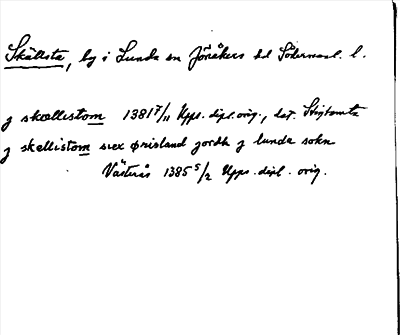 Skällsta, by i Lunda sn Jönåkers hd Södermanl. l.
j skællistom 1381 7/11 Upps. dipl. orig., dat. Stigtomta
j skellistom siex ørisland jordh j lunda sokn
Västerås 1385 5/2 Upps. dipl. orig.